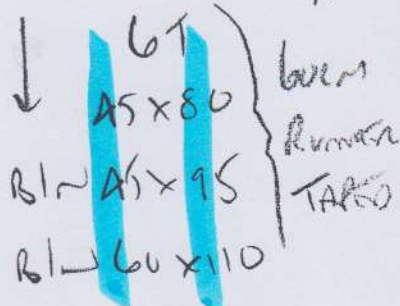 6T
45 x 80
BIN 45 x 95
BIN 60 x 110
RUNNER
TAPED